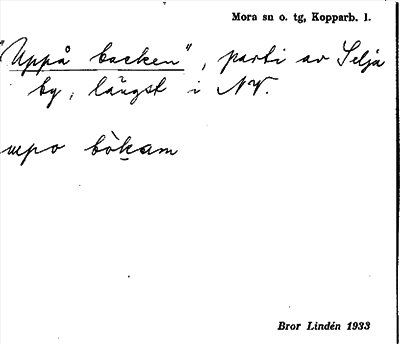 Mora sn o. tg, Kopparb. l.
"Uppå backen", parti av Selja
by, längst i NV.
upo bòkam
Bror Lindén 1933